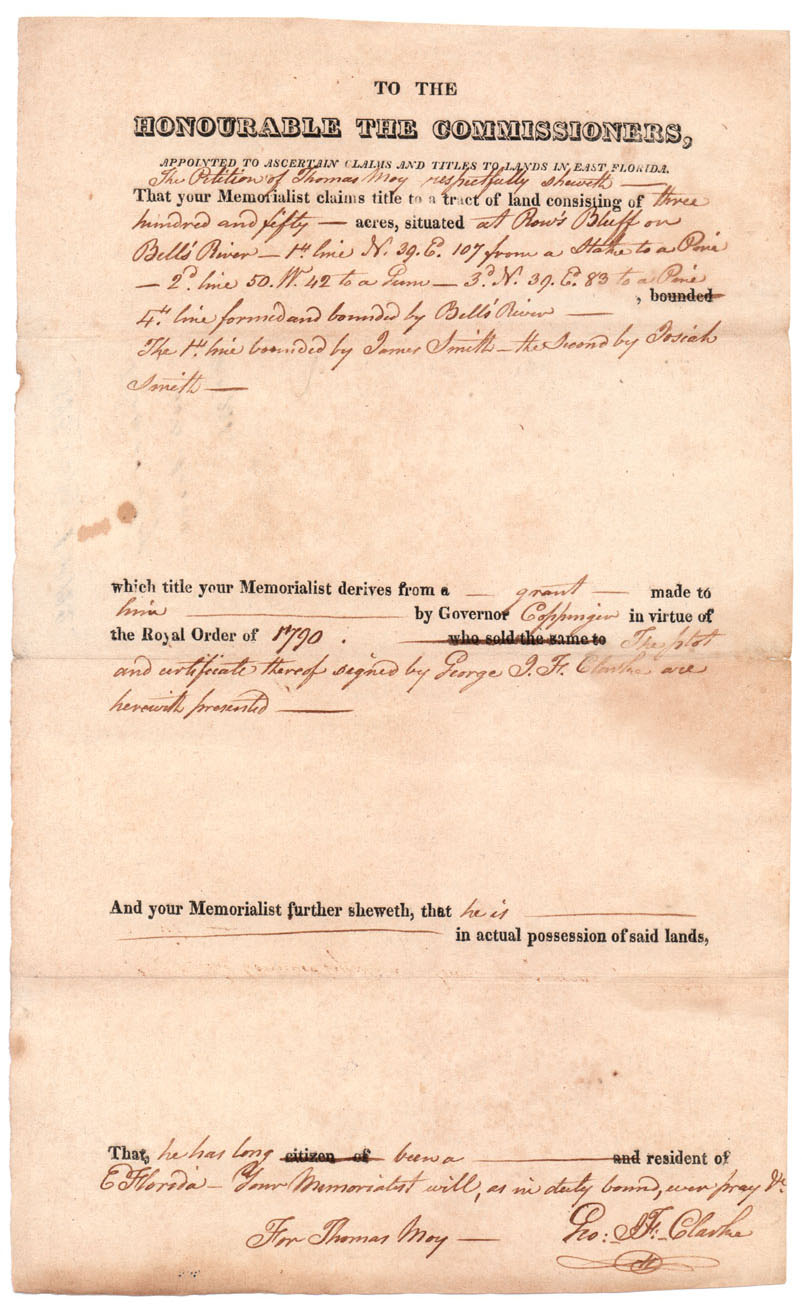 TO THE
HONOURABLE THE COMMISSIONERS,
APPOINTED TO ASCERTAIN CLAIMS AND TITLES TO LANDS IN EAST FLORIDA.
The Petition of Thomas Moy respectfully sheweth —
That your Memorialist claims title to a tract of land consisting of three
hundred and fifty — acres, situated at Row's Bluff on
Bell's River — 1st line N. 39. E. 107 from a Stake to a Pine
— 2d. line 50. W. 42 to a Gum — 3d. N. 39. E. 83 to a Pine
, bounded
4th line formed and bounded by Bell's River —
The 1st line bounded by James Smith — the Second by Josiah
Smith —
which title your Memorialist derives from a — grant — made to
him — by Governor Coppinger in virtue of
the Royal Order of 1790. who sold the same to The plot
and certificate thereof signed by George J. F. Clarke are
herewith presented —
And your Memorialist further sheweth, that he is —
in actual possession of said lands,
That, he has long citizen of been a — and resident of
E Florida — Your Memorialist will, as in duty bound, ever pray &c
For Thomas Moy — Geo: J. F. Clarke